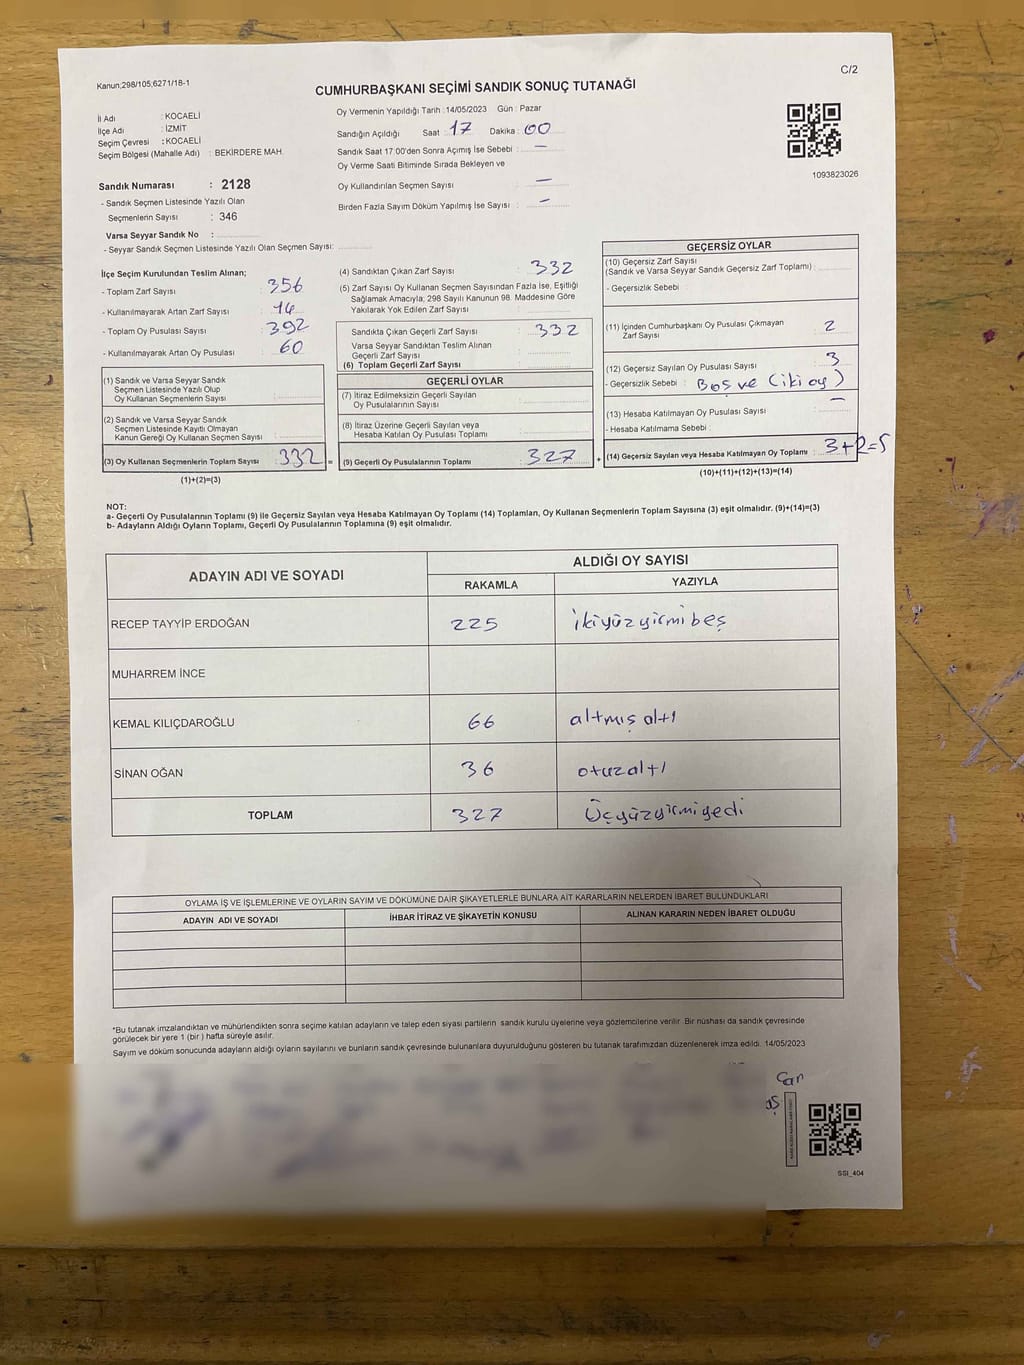 Kanun;298/105;6271/18-1
C/2
CUMHURBAŞKANI SEÇİMİ SANDIK SONUÇ TUTANAĞI
İl Adı : KOCAELİ
İlçe Adı : İZMİT
Seçim Çevresi : KOCAELİ
Seçim Bölgesi (Mahalle Adı) : BEKİRDERE MAH.
Sandık Numarası : 2128
- Sandık Seçmen Listesinde Yazılı Olan
Seçmenlerin Sayısı : 346
Varsa Seyyar Sandık No :
- Seyyar Sandık Seçmen Listesinde Yazılı Olan Seçmen Sayısı:
Oy Vermenin Yapıldığı Tarih :14/05/2023 Gün : Pazar
Sandığın Açıldığı Saat : 17 Dakika : 00
Sandık Saat 17:00'den Sonra Açımış İse Sebebi : —
Oy Verme Saati Bitiminde Sırada Bekleyen ve
Oy Kullandırılan Seçmen Sayısı —
Birden Fazla Sayım Döküm Yapılmış İse Sayısı : —
1093823026
İlçe Seçim Kurulundan Teslim Alınan;
- Toplam Zarf Sayısı : 356
- Kullanılmayarak Artan Zarf Sayısı : 14
- Toplam Oy Pusulası Sayısı : 392
- Kullanılmayarak Artan Oy Pusulası : 60
(1) Sandık ve Varsa Seyyar Sandık
Seçmen Listesinde Yazılı Olup
Oy Kullanan Seçmenlerin Sayısı :
(2) Sandık ve Varsa Seyyar Sandık
Seçmen Listesinde Kayıtlı Olmayan
Kanun Gereği Oy Kullanan Seçmen Sayısı :
(3) Oy Kullanan Seçmenlerin Toplam Sayısı : 332 =
(1)+(2)=(3)
(4) Sandıktan Çıkan Zarf Sayısı : 332
(5) Zarf Sayısı Oy Kullanan Seçmen Sayısından Fazla İse, Eşitliği
Sağlamak Amacıyla, 298 Sayılı Kanunun 98. Maddesine Göre
Yakılarak Yok Edilen Zarf Sayısı :
Sandıkta Çıkan Geçerli Zarf Sayısı : 332
Varsa Seyyar Sandıktan Teslim Alınan
Geçerli Zarf Sayısı :
(6) Toplam Geçerli Zarf Sayısı :
GEÇERLİ OYLAR
(7) İtiraz Edilmeksizin Geçerli Sayılan
Oy Pusulalarının Sayısı :
(8) İtiraz Üzerine Geçerli Sayılan veya
Hesaba Katılan Oy Pusulası Toplamı :
(9) Geçerli Oy Pusulalarının Toplamı : 327 +
GEÇERSİZ OYLAR
(10) Geçersiz Zarf Sayısı
(Sandık ve Varsa Seyyar Sandık Geçersiz Zarf Toplamı) :
- Geçersizlik Sebebi :
(11) İçinden Cumhurbaşkanı Oy Pusulası Çıkmayan
Zarf Sayısı : 2
(12) Geçersiz Sayılan Oy Pusulası Sayısı : 3
- Geçersizlik Sebebi : Boş ve (iki oy)
(13) Hesaba Katılmayan Oy Pusulası Sayısı : —
- Hesaba Katılmama Sebebi :
(14) Geçersiz Sayılan veya Hesaba Katılmayan Oy Toplamı : 3+2=5
(10)+(11)+(12)+(13)=(14)
NOT:
a- Geçerli Oy Pusulalarının Toplamı (9) ile Geçersiz Sayılan veya Hesaba Katılmayan Oy Toplamı (14) Toplamları, Oy Kullanan Seçmenlerin Toplam Sayısına (3) eşit olmalıdır. (9)+(14)=(3)
b- Adayların Aldığı Oyların Toplamı, Geçerli Oy Pusulalarının Toplamına (9) eşit olmalıdır.
ADAYIN ADI VE SOYADI
ALDIĞI OY SAYISI
RAKAMLA YAZIYLA
RECEP TAYYİP ERDOĞAN 225 ikiyüzyirmibeş
MUHARREM İNCE
KEMAL KILIÇDAROĞLU 66 altmışaltı
SİNAN OĞAN 36 otuzaltı
TOPLAM 327 Üçyüzyirmiyedi
OYLAMA İŞ VE İŞLEMLERİNE VE OYLARIN SAYIM VE DÖKÜMÜNE DAİR ŞİKAYETLERLE BUNLARA AİT KARARLARIN NELERDEN İBARET BULUNDUKLARI
ADAYIN ADI VE SOYADI İHBAR İTİRAZ VE ŞİKAYETİN KONUSU ALINAN KARARIN NEDEN İBARET OLDUĞU
*Bu tutanak imzalandıktan ve mühürlendikten sonra seçime katılan adayların ve talep eden siyasi partilerin sandık kurulu üyelerine veya gözlemcilerine verilir. Bir nüshası da sandık çevresinde
görülecek bir yere 1 (bir ) hafta süreyle asılır.
Sayım ve döküm sonucunda adayların aldığı oyların sayılarını ve bunların sandık çevresinde bulunanlara duyurulduğunu gösteren bu tutanak tarafımızdan düzenlenerek imza edildi. 14/05/2023
Can
SSI_404